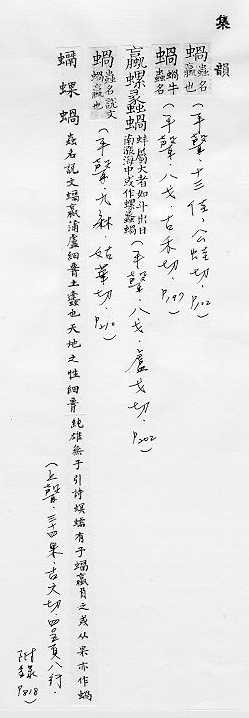 集韻
蝸蟲名蠃也（平聲．十三佳．公蛙切．P102）
蝸蝸牛蟲名（平聲．八戈．古禾切．P199）
蠃螺蠡蝸蚌屬大者如斗出日南漲海中或作螺蠡蝸（平聲．八戈．盧戈切．P202）
蝸蟲名說文蝸蠃也（平聲．九麻．姑華切．P210）
蠣蜾蝸蟲名說文蠣蠃蒲盧細腰土蠭也天地之性細腰純雄無子引詩螟蠕有子蠣蠃負之或从果亦作蝸
（上聲．三十四果．古火切．四五頁八行．
附錄P818）